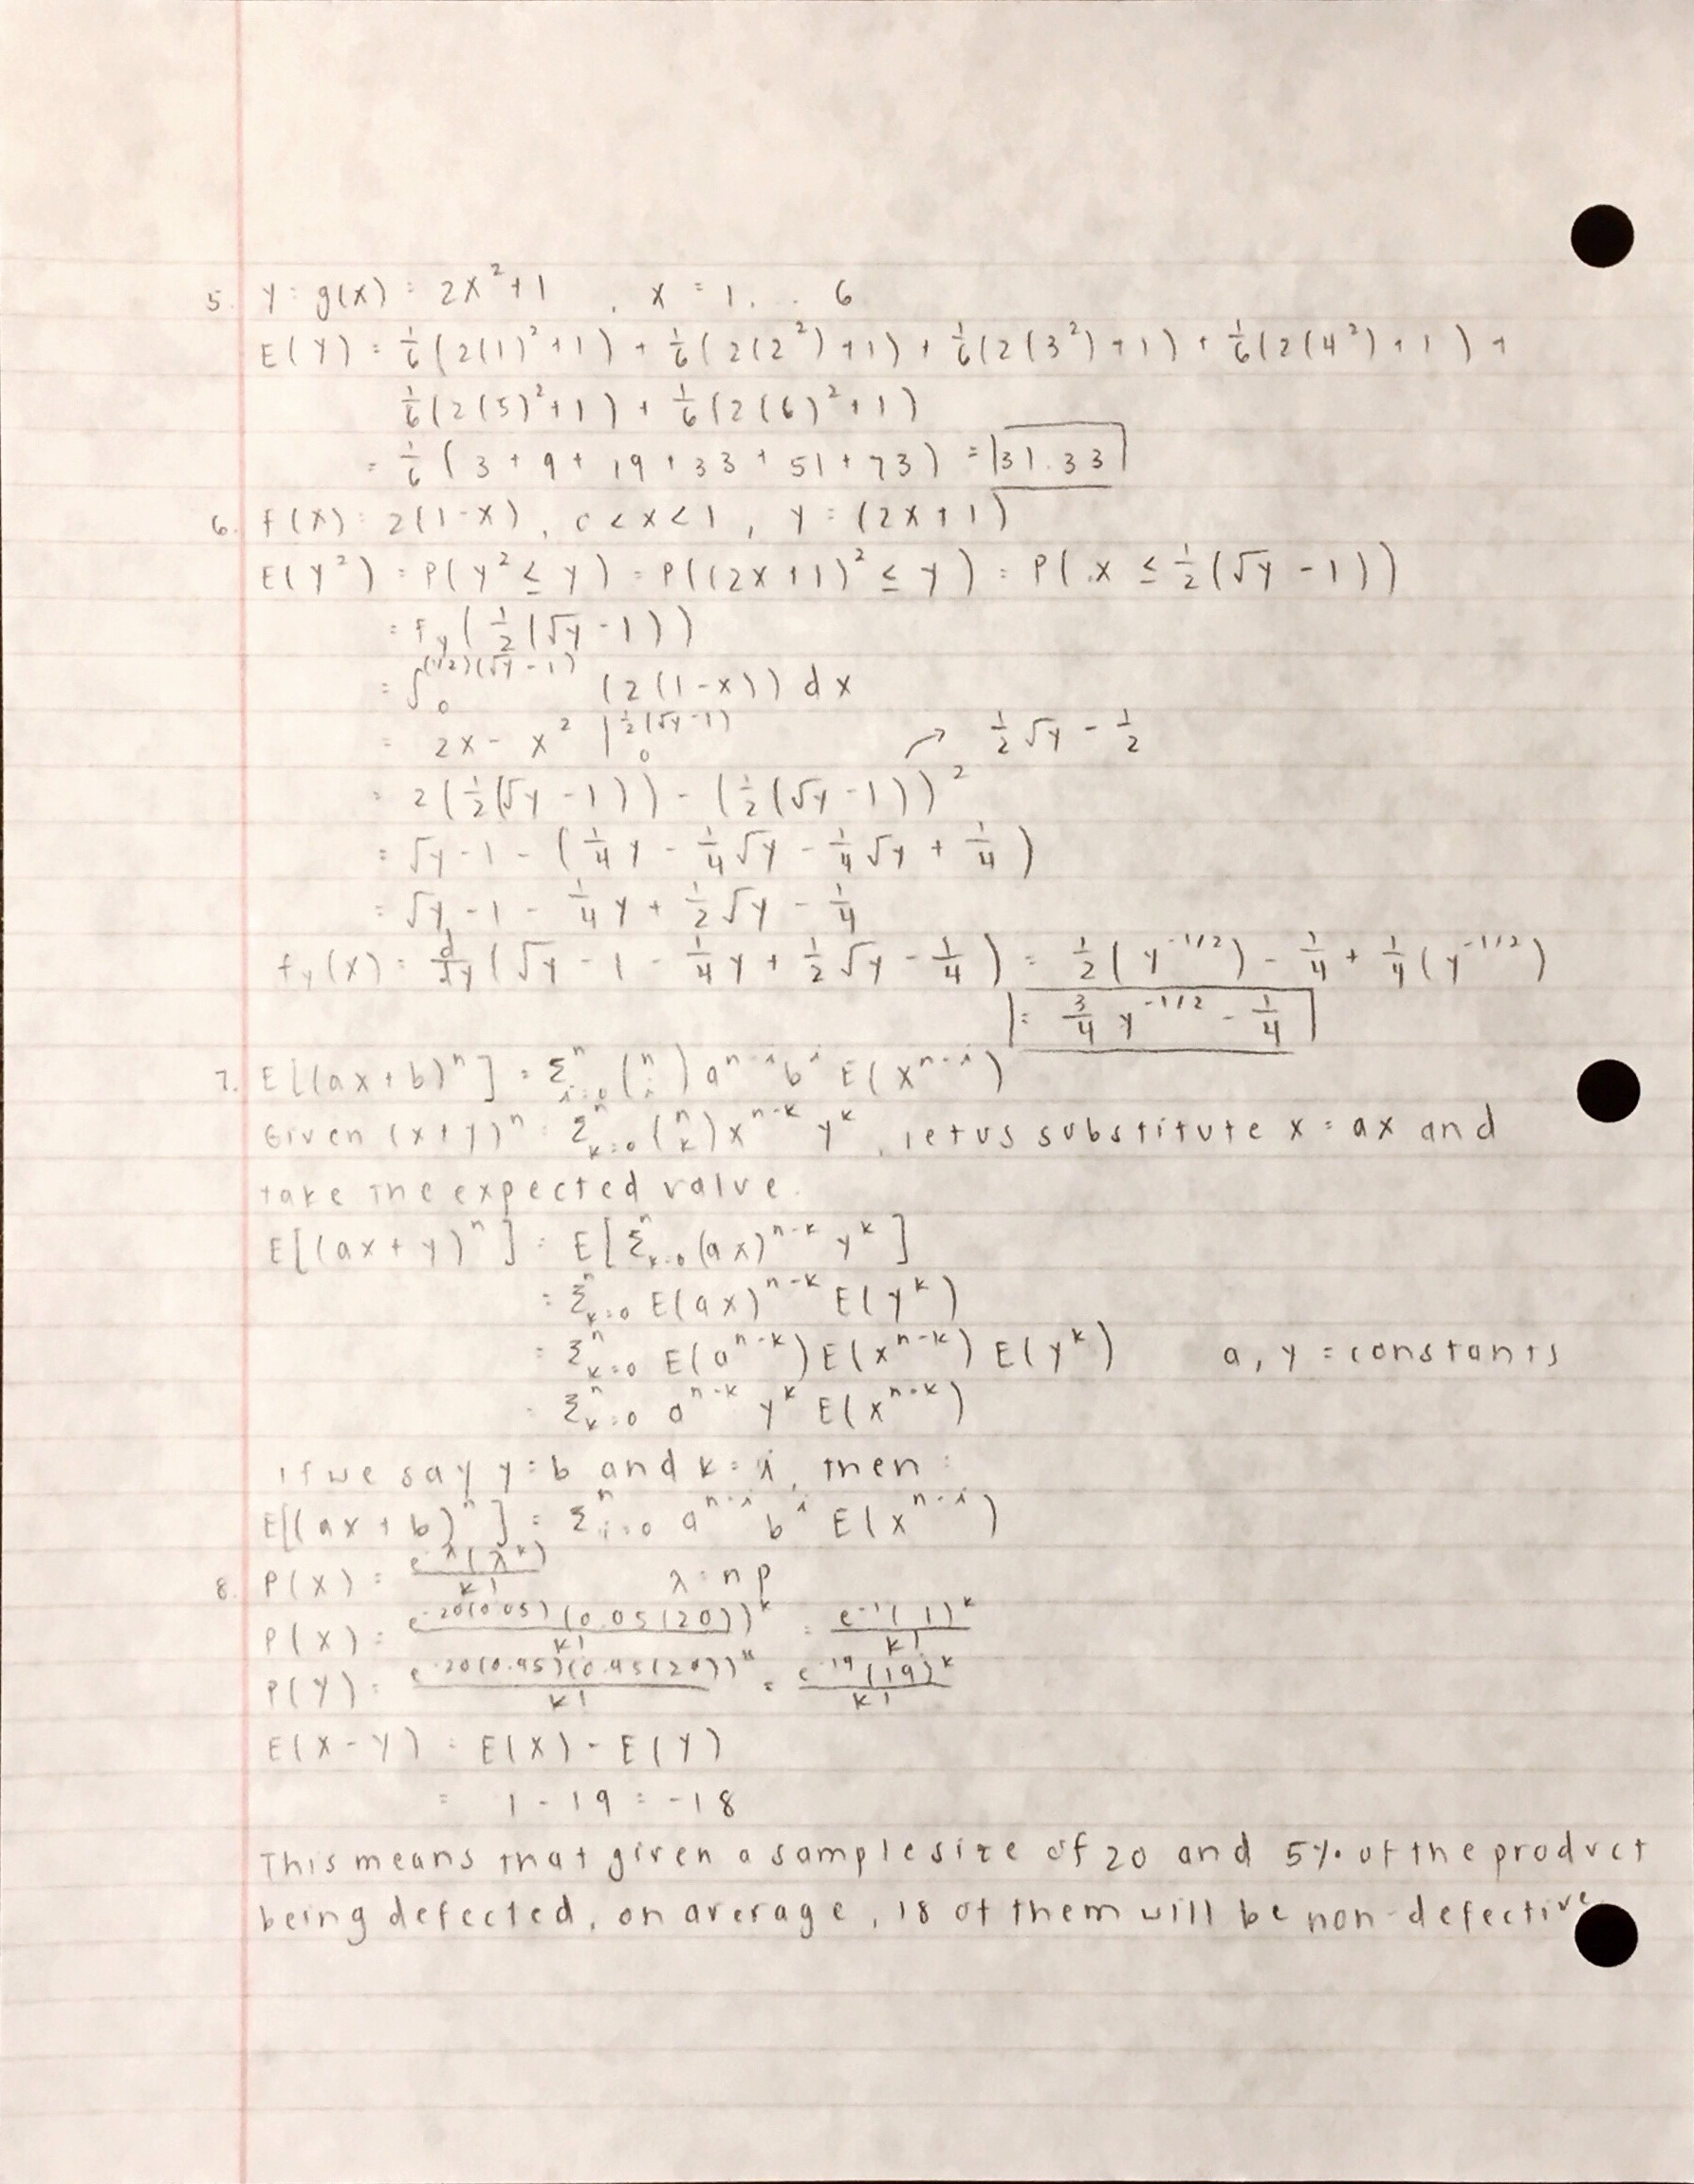 5. Y = g(x) = 2x²+1 , x = 1, . . 6
E(Y) = 1/6(2(1)²+1) + 1/6(2(2²)+1) + 1/6(2(3²)+1) + 1/6(2(4²)+1) +
1/6(2(5)²+1) + 1/6(2(6)²+1)
= 1/6(3+9+19+33+51+73) = 31.33
6. f(x) = 2(1-x), 0<x<1, y = (2x+1)
E(Y²) = P(Y² ≤ y) = P((2x+1)² ≤ y) = P(x ≤ 1/2(√y - 1))
= f_y(1/2(√y - 1))
= ∫₀^((1/2)(√y - 1)) (2(1-x)) dx
= 2x - x² |₀^(1/2(√y-1)) ↗ 1/2√y - 1/2
= 2(1/2(√y - 1)) - (1/2(√y - 1))²
= √y - 1 - (1/4 y - 1/4√y - 1/4√y + 1/4)
= √y - 1 - 1/4 y + 1/2√y - 1/4
f_y(x) = d/dy(√y - 1 - 1/4 y + 1/2√y - 1/4) = 1/2(y^(-1/2)) - 1/4 + 1/4(y^(-1/2))
= 3/4 y^(-1/2) - 1/4
7. E[(ax+b)ⁿ] = Σⁿ_(i=0) (n i) a^(n-i) b^i E(x^(n-i))
Given (x+y)ⁿ = Σⁿ_(k=0) (n k) x^(n-k) y^k, let us substitute x = ax and
take the expected value.
E[(ax+y)ⁿ] = E[Σⁿ_(k=0) (ax)^(n-k) y^k]
= Σⁿ_(k=0) E(ax)^(n-k) E(y^k)
= Σⁿ_(k=0) E(a^(n-k)) E(x^(n-k)) E(y^k) a, y = constants
= Σⁿ_(k=0) a^(n-k) y^k E(x^(n-k))
If we say y = b and k = i, then:
E[(ax+b)ⁿ] = Σⁿ_(i=0) a^(n-i) b^i E(x^(n-i))
8. P(X) = e^(-λ)(λ^k)/k! λ = np
P(X) = e^(-20(0.05))(0.05(20))^k/k! = e^(-1)(1)^k/k!
P(Y) = e^(-20(0.95))(0.95(20))^k/k! = e^(-19)(19)^k/k!
E(X-Y) = E(X) - E(Y)
= 1 - 19 = -18
This means that given a sample size of 20 and 5% of the product
being defected, on average, 18 of them will be non-defective